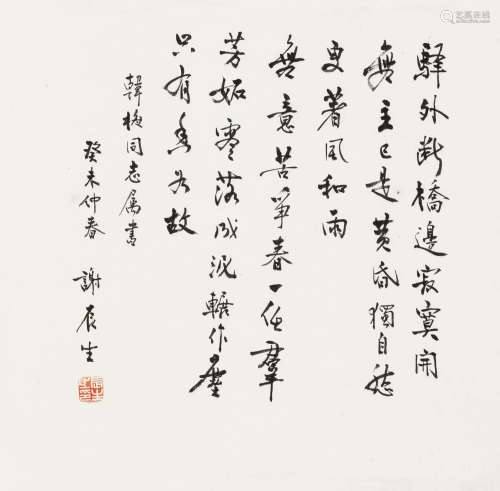 驛外斷橋邊寂寞開
無主已是黄昏獨自愁
更著風和雨
無意苦争春一任羣
芳妬零落成泥輾作塵
只有香如故
韓梅同志属書
癸未仲春 謝辰生